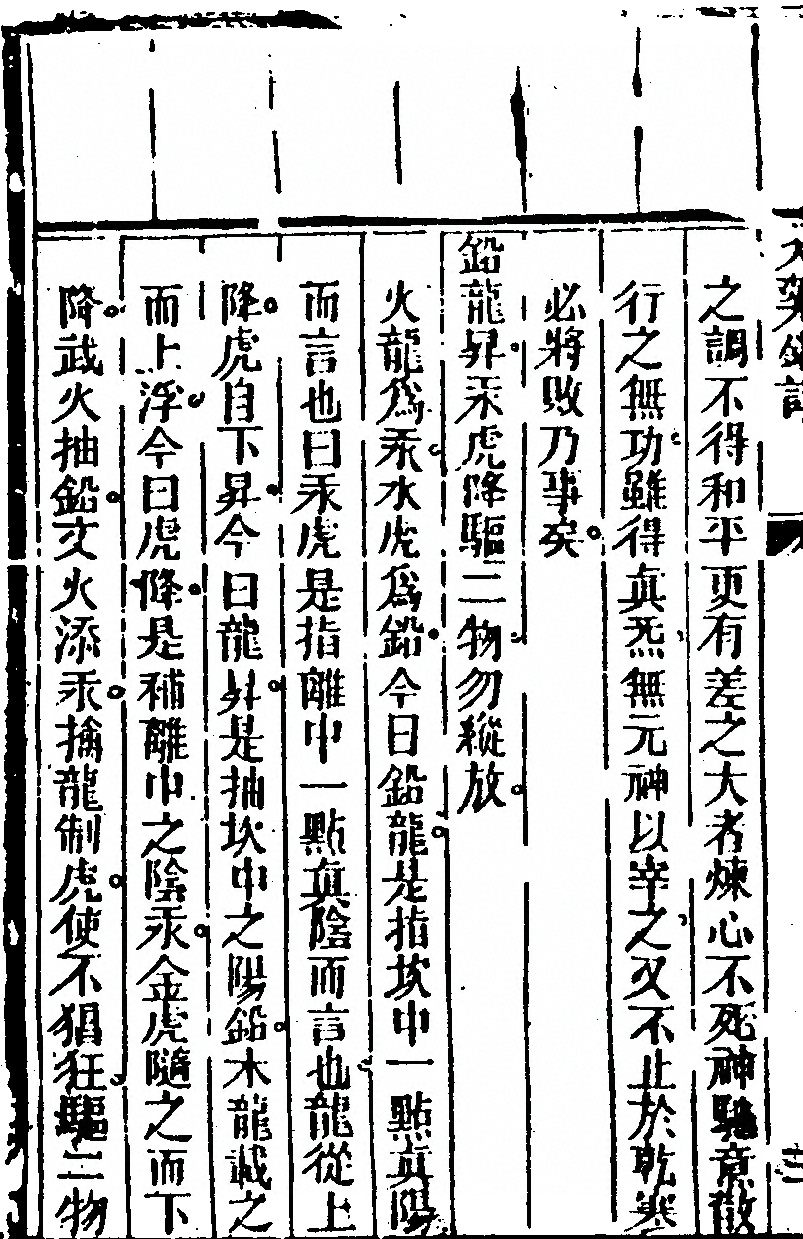 之調不得和平更有差之大者煉心不死神馳意散
行之無功雖得真炁無元神以宰之又不止於乾寒
必將敗乃事矣
鉛龍昇汞虎降驅二物勿縱放
火龍為汞水虎為鉛今日鉛龍是指坎中一點真陽
而言也曰汞虎是指離中一點真陰而言也龍從上
降虎自下昇今曰龍昇是抽坎中之陽鉛木龍誠之
而上浮今曰虎降是補離中之陰汞金虎隨之而下
降武火抽鉛文火添汞擒龍制虎使不猖狂驅二物